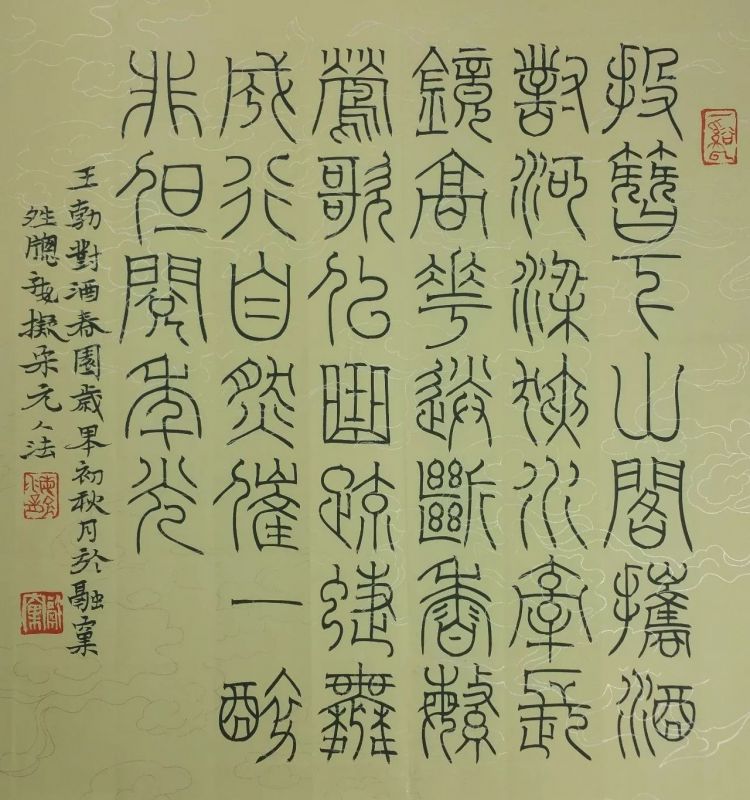 投簪下山閣攜酒
對河梁狹水牽長
鏡高花送斷香繁
鶯歌似曲疏蜨舞
成行自然催一醉
非但閱年光
王勃對酒春園歲 初秋月於融窠
牕 擬宋元人法